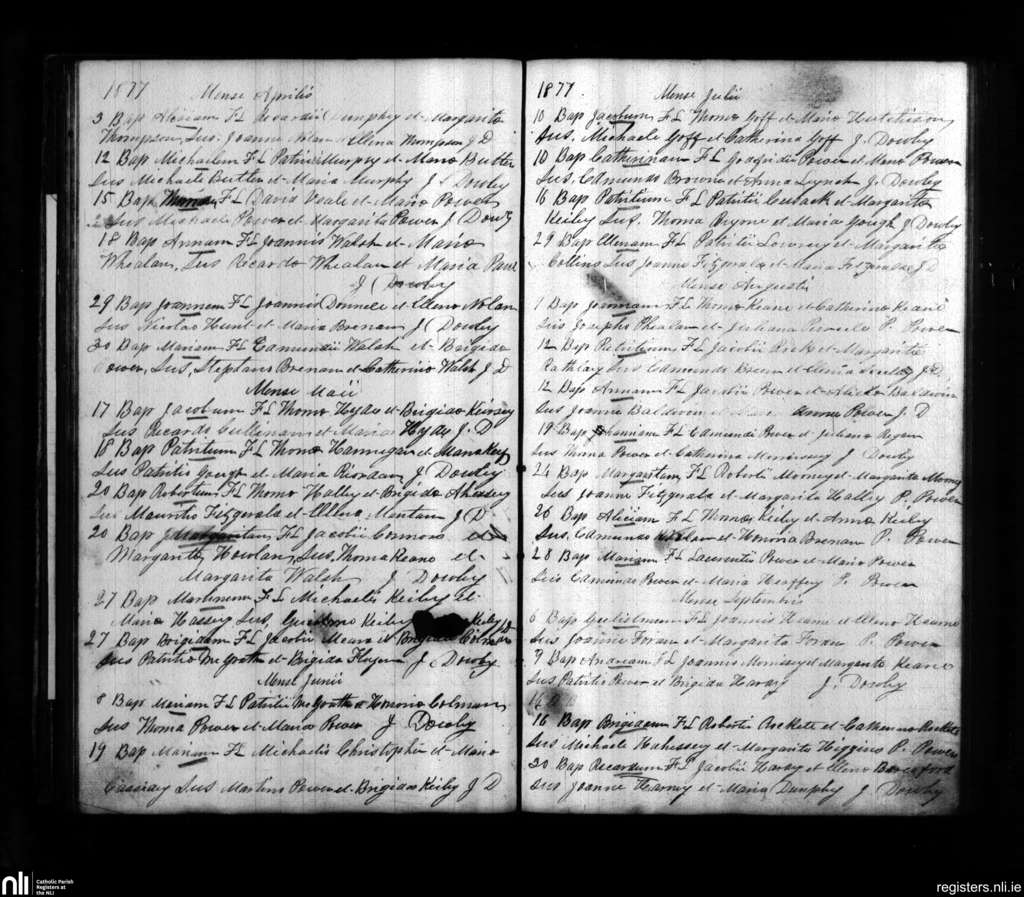 1877 Mense Aprilis
3 Bap F L et Margarita
Thompson, Sus. Joanne Nolan Ellena Thompson J D
12 Bap Michaelem F L Patricii Murphy et Maria Butler
Sus Michael Butler et Maria Murphy J. Dowby
15 Bap F L David Veale et Maria Power
Sus Michaele Power et Margarita Power J Dowby
18 Bap Annam F L Joannis Walsh et Maria
Whealan, Sus Ricardo Whealan et Maria Paul
J Dowby
29 Bap Joannem F L Joannis et Ellena Nolan
Sus Nicolao Hunt et Maria Brenan J Dowby
30 Bap Mariam F L Edmundii Walsh et Brigida
Power, Sus, Stephans Brenan et Catherina Walsh J D
Mense Maii
17 Bap Jacobum F L Thoma Hyde et Brigida Kiersey
Sus Ricardo Cullinan et Maria Hyde J. D
18 Bap Patritium F L Thoma Hannigan et Maria Key
Sus Patritis Gough et Maria Riordan J Dowby
20 Bap Robertum F L Thoma Halley et Brigida Ahessey
Sus Mauritis Fitzgerald et Ellena J D
20 Bap Margaritam F L Jacobii Connors
Margarita Howlan, Sus. Thoma Keane et
Margarita Walsh J. Dowby
27 Bap Martinum F L Michaelis Keiby et
Maria Hassey Sus, Keiby Keiby
27 Bap Brigidam F L Jacobii Meara et Brigida
Sus Patritio McGrath et Brigida J. Dowby
Mense Junii
8 Bap Mariam F L Patritii McGrath et Honora Colman
Sus Thoma Power et Maria Power J Dowby
19 Bap Mariam F L Michaelis Christopher et Maria
Cassiay Sus Martins Power et Brigida Keiby J D
1877. Mense Julii
10 Bap Jacobum F L Thoma Goff et Maria Hutchison
Sus. Michaele Goff et Catherina Goff J. Dowby
10 Bap Catherinam F L Power et Power
Sus. Edmundo Brown et Anna Lynch J. Dowby
16 Bap Patritium F L Patritii Cusack et Margarita
Keiby Sus. Thoma Bryne et Maria Gough J Dowby
29 Bap Ellenam F L Patritii Lowney et Margarita
Collins Sus Joanne Fitzgerald et Maria Fitzgerald J D
Mense Augusti
1 Bap Joannam F L Thoma Keane et Catherina Keane
Sus Josepho Phealan et Juliana P. Power
12 Bap Patritium F L Jacobii et Margarita
Sus Edmundo et J. D
12 Bap Annam F L Jacobii Power et Alicia Baldwin
Sus Joanne Baldwin et Anna Power J. D
19 Bap Johannam F L Edmundi Power et Juliana Regan
Sus Thoma Power et Catherina Morrissey J Dowby
24 Bap Margaritam F L Roberti Morney et Margarita Morney
Sus Joanne Fitzgerald et Margarita Halley P. Power
26 Bap Aliciam F L Thoma Keiby et Anna Keiby
Sus. Edmundo et Honora Brenan P. Power
28 Bap Mariam F L Laurentii Power et Maria Power
Sus Edmundo Power et Maria Heaffey P. Power
Mense Septembris
6 Bap Guilielmum F L Joannis Hearne et Ellena Hearne
Sus Joanne Foran et Margarita Foran P. Power
9 Bap Andream F L Joannis Morrissey et Margarita Keane
Sus Patritio Power et Brigida Haray J. Dowby
16
16 Bap Brigidam F L Roberti Rockete et Catherina Rockete
Sus Michaele Hahessey et Margarita Higgins P. Power
30 Bap Recardum F L Jacobii Haray et Ellena Beresford
Sus Joanne Harney et Maria Dunphy J Dowby
nli
Catholic Parish
Registers at
the NLI
registers.nli.ie